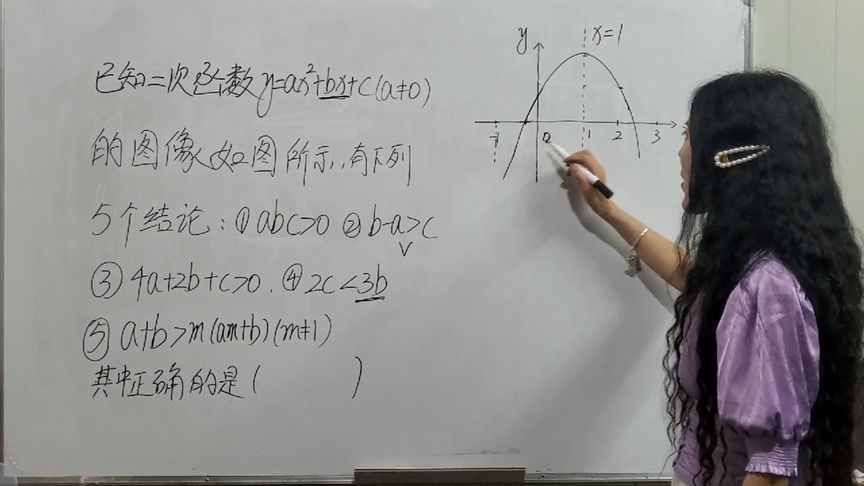 已知二次函数y=ax²+bx+c(a≠0)
的图像如图所示,有下列
5个结论:①abc>0 ②b-a>c
③4a+2b+c>0. ④2c<3b
⑤a+b>m(am+b)(m≠1)
其中正确的是( )
y
x=1
-1 0 1 2 3